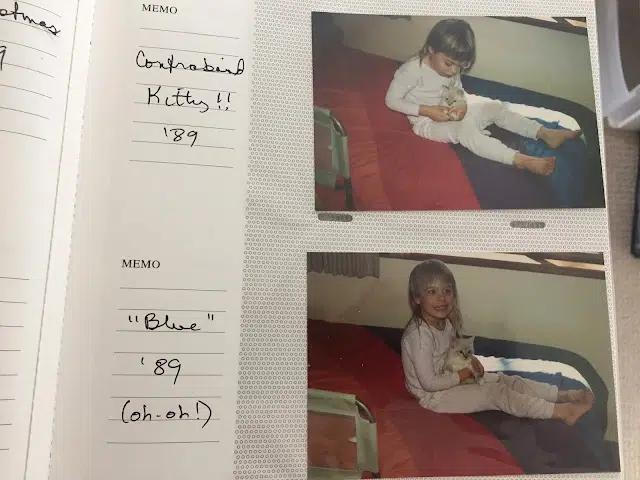 MEMO
Contraband
Kitty!!
'89
MEMO
"Blue"
'89
(oh-oh!)